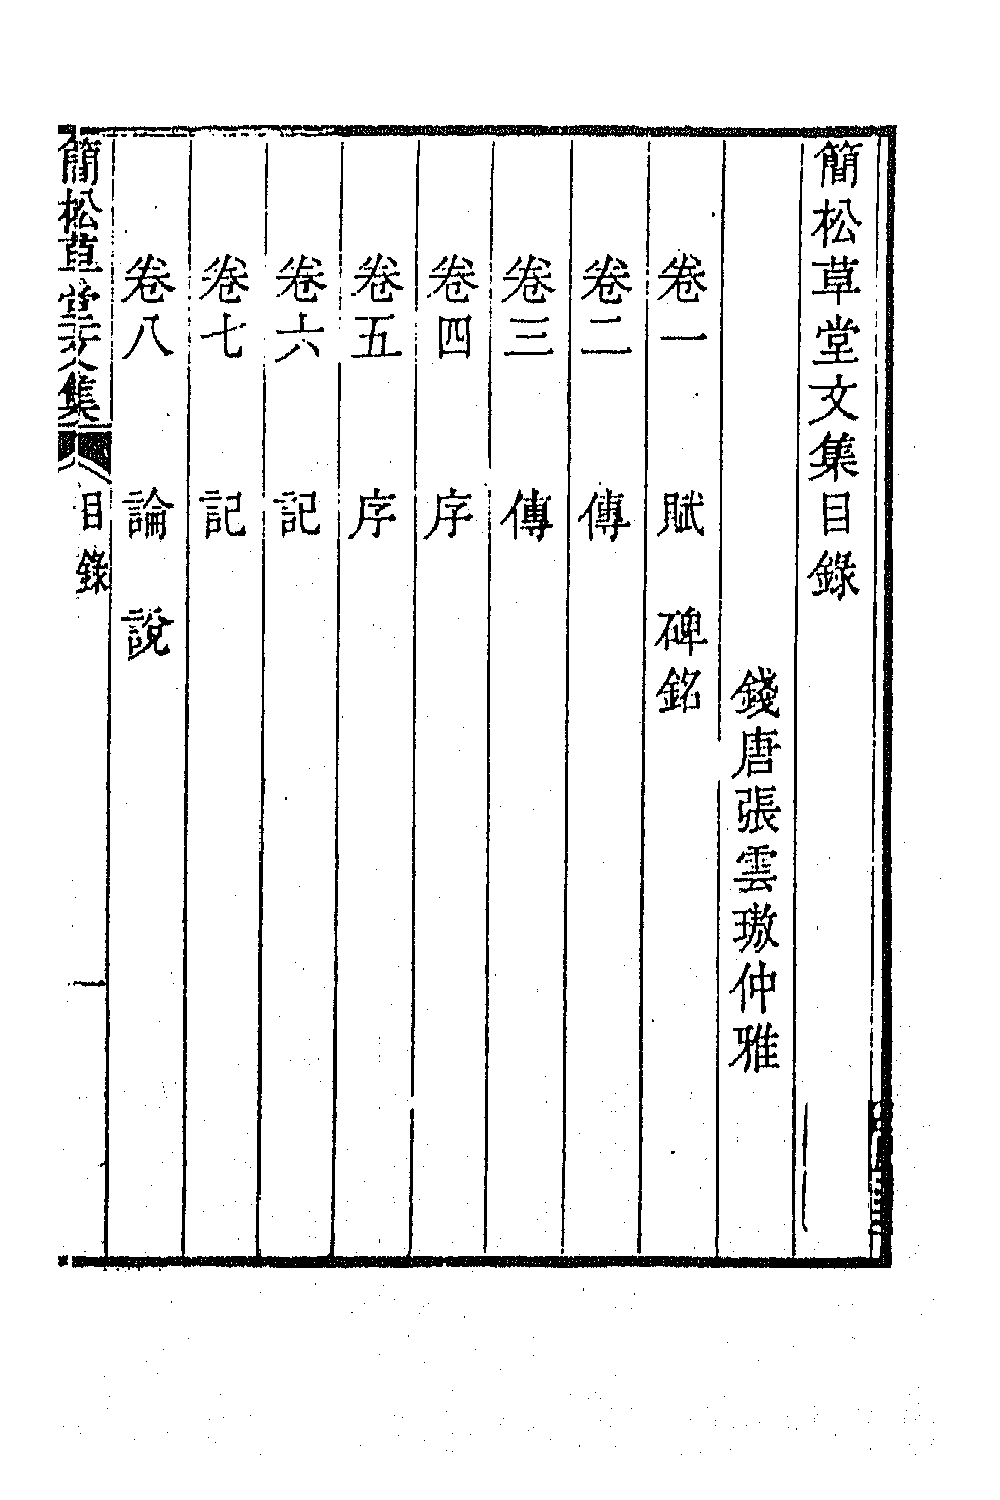 簡松草堂文集目錄
錢唐張雲璈仲雅
卷一 賦 碑銘
卷二 傳
卷三 傳
卷四 序
卷五 序
卷六 記
卷七 記
卷八 論 說
簡松草堂文集 目錄 一